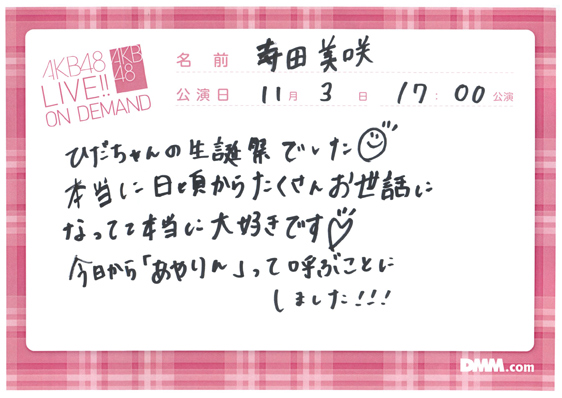 AKB48
LIVE!!
ON DEMAND
AKB
48
名前 寿田美咲
公演日 11月3日 17:00公演
ひだちゃんの生誕祭でした
本当に日頃からたくさんお世話に
なってて本当に大好きです♡
今日から「あやりん」って呼ぶことに
しました!!!
DMM.com